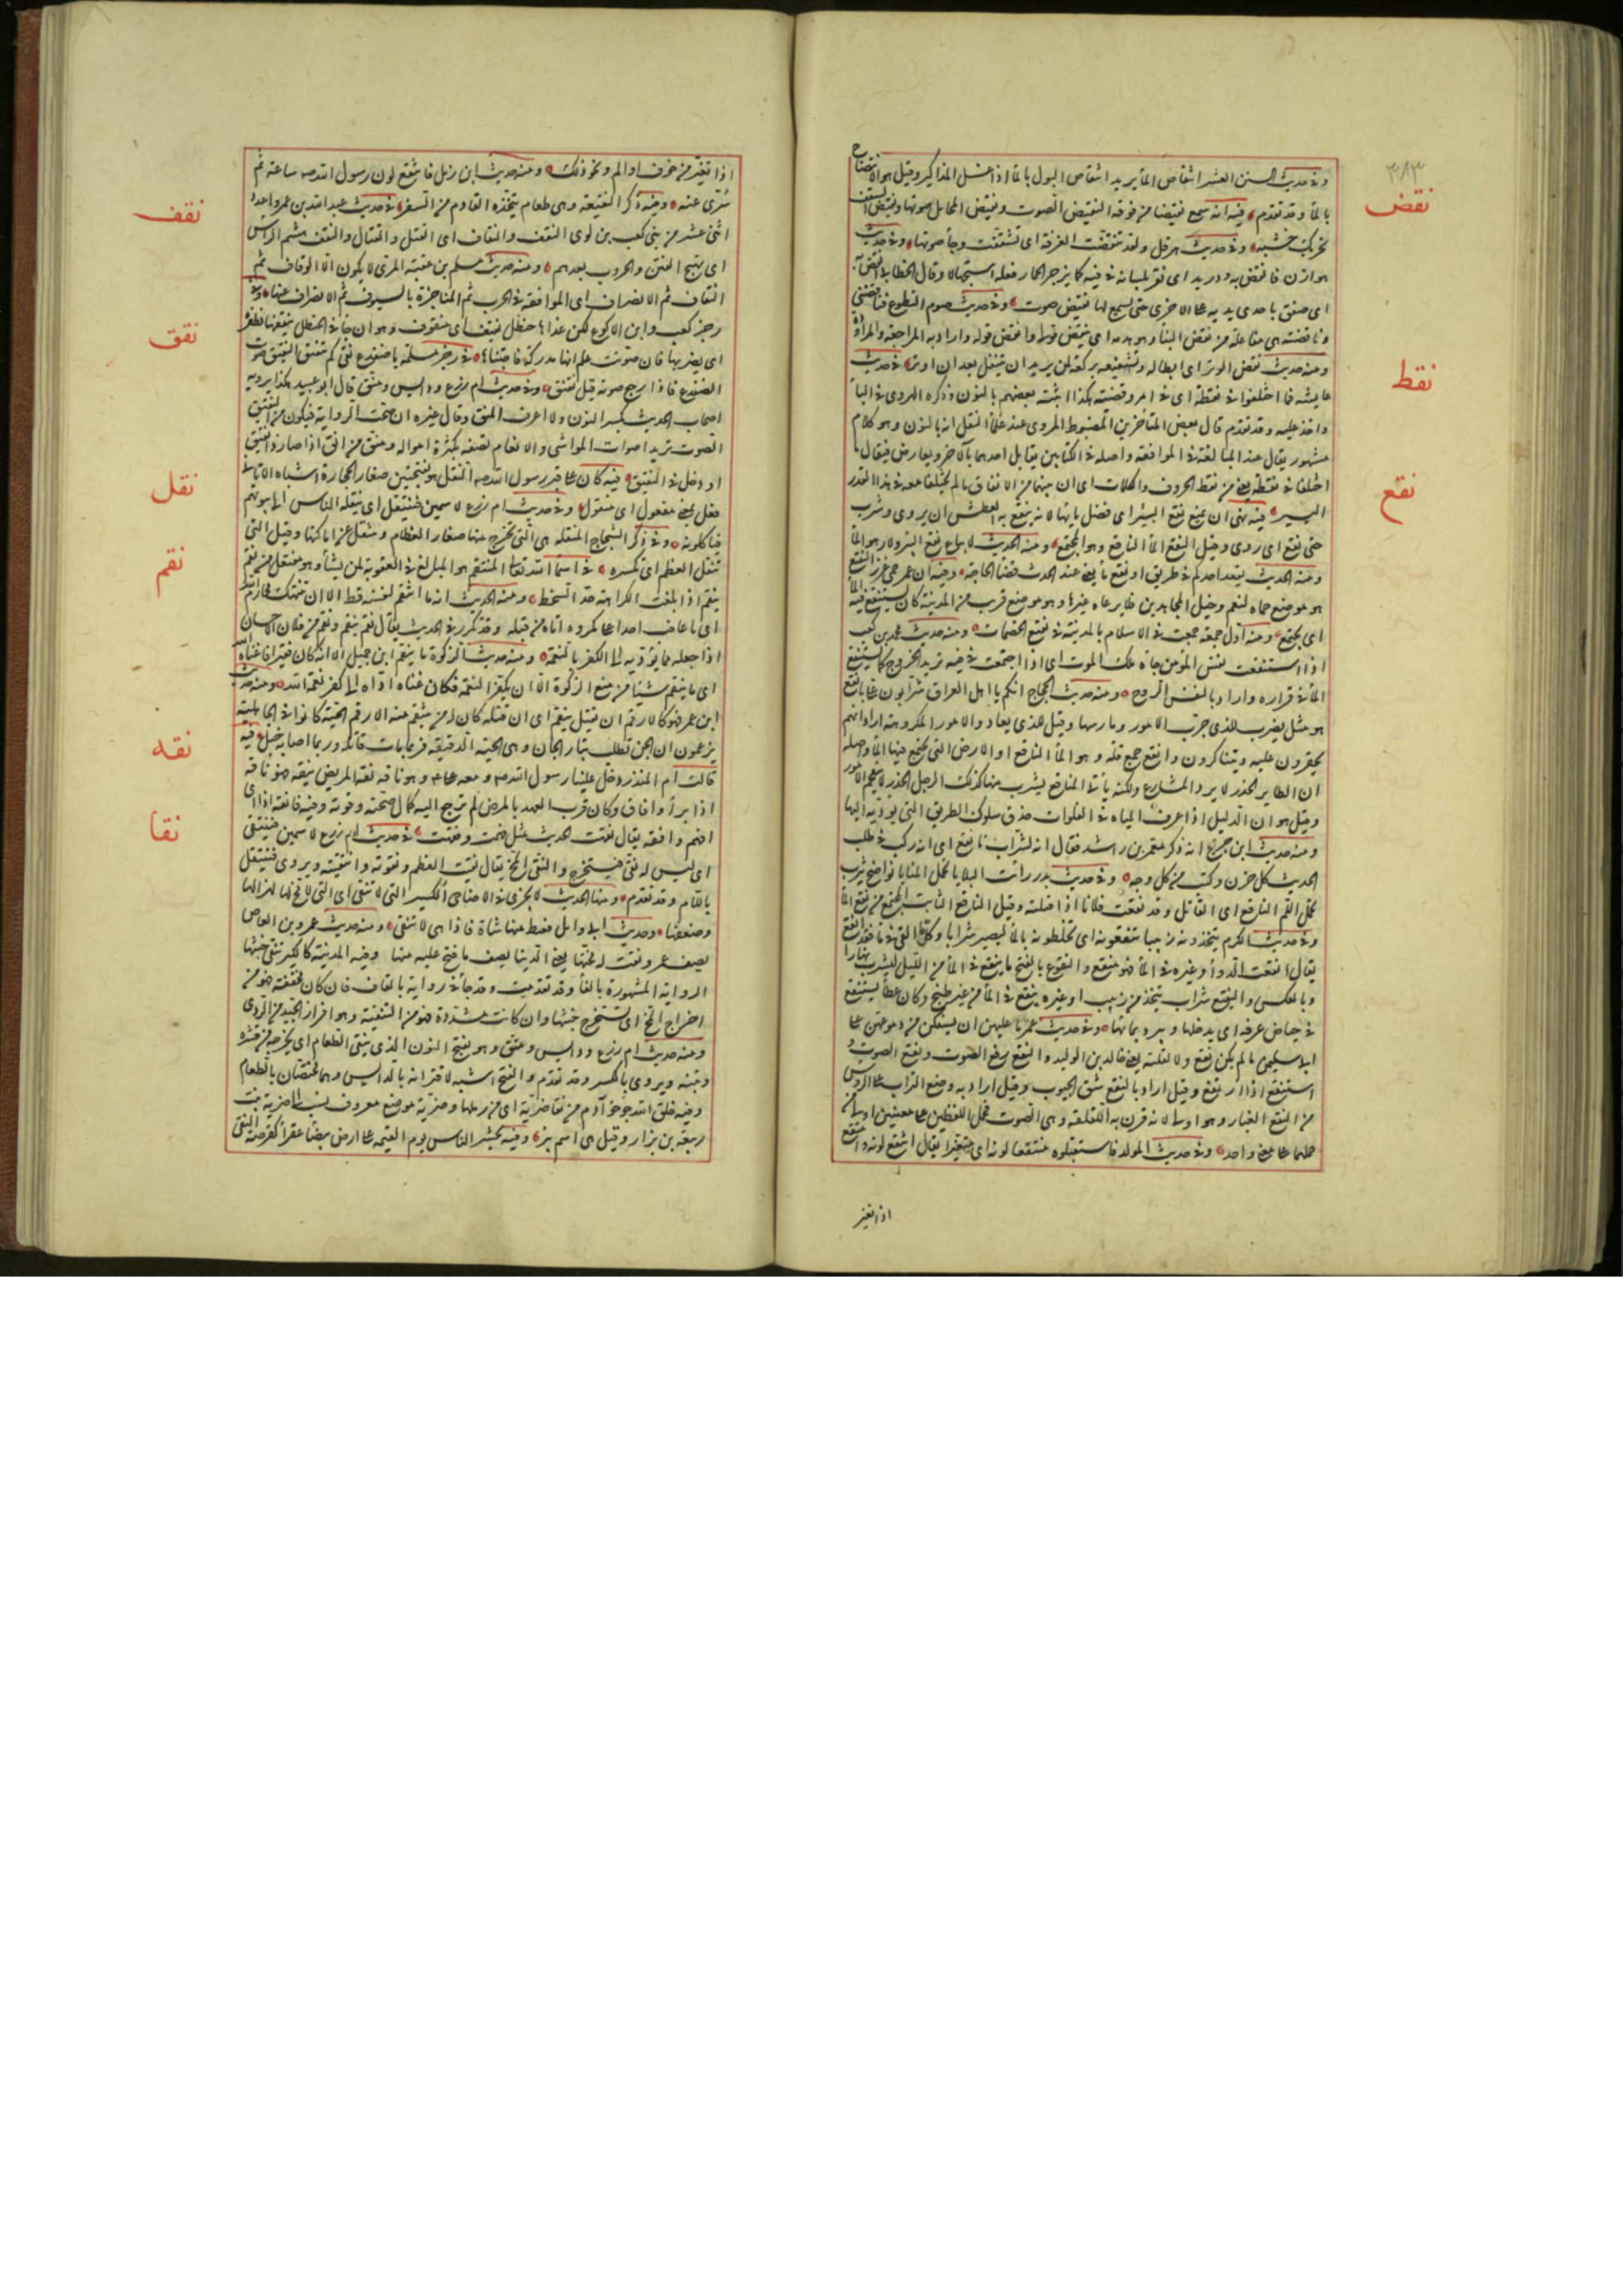 ٣٨٣
نقض
نقط
نقع
وفي حديث السنن العشر انتقاص الماء يريد انتقاص البول بالماء اذا غسل المذاكير وقيل هو الانتضاح
بالماء وقد تقدم فيه انه سمع نقيضا من فوقه النقيض الصوت ونقيض المحامل صوتها ونقيض السقف
تحريك خشبه وفي حديث هرقل ولقد تنقضت الغرفة اى تشققت وجاء صوتها وفي حديث
هوازن فانقض به دريد اى نقر بلسانه في فيه كما يزجر الحمار فعله استجهالا وقال الخطابي انقض به
اى صفق باحدى يديه على الاخرى حتى يسمع لها نقيض صوت وفي حديث صوم التطوع فناقضني
وناقضته هي مفاعلة من نقض البناء وهو هدمه اى ينقض قولي وانقض قوله واراد به المراجعة والمرادة
ومنه حديث نقض الوتر اى ابطاله وتشفيعه بركعة لمن يريد ان يتنفل بعد ان اوتر في حديث
عايشة فما اختلفوا في نقطة اى في امر وقضية هكذا اثبته بعضهم بالنون وذكره الهروى في الباء
واخذ عليه وقد تقدم قال بعض المتأخرين المضبوط المروى عند علماء النقل انه بالنون وهو كلام
مشهور يقال عند المبالغة في الموافقة واصله في الكتابين يقابل احدهما بالآخر ويعارض فيقال ما
اختلفا في نقطة يعني من نقط الحروف والكلمات اى ان بينهما من الاتفاق ما لم يختلفا معه في هذا القدر
اليسير فيه نهى ان يمنع نقع البئر اى فضل مايها لانه ينقع به العطش اى يروى وشرب
حتى نقع اى روى وقيل النقع الماء الناقع وهو المجتمع ومنه الحديث لا يباع نقع البئر ولا رهو الماء
ومنه الحديث يقعد احدكم في طريق او نقع ماء يعني عند الحدث وقضاء الحاجة وفيه ان عمر حمى غرز النقيع
هو موضع حماه لنعم وخيل المجاهدين فلا يرعاه غيرها وهو موضع قريب من المدينة كان يستنقع فيه الماء
اى يجتمع ومنه اول جمعة جمعت في الاسلام بالمدينة في نقيع الخضمات ومنه حديث محمد بن كعب
اذا استنقعت نفس المؤمن جاءه ملك الموت اى اذا اجتمعت في فيه تريد الخروج كما يستنقع
الماء في قراره واراد بالنفس الروح ومنه حديث الحجاج انكم يا اهل العراق شرابون على بانقع
هو مثل يضرب للذى جرب الامور ومارسها وقيل للذى يعاود الامور المكروهة اراد انهم
يجترون عليه ويتناكرون وانقع جمع قلة وهو الماء الناقع او الارض التى يجتمع فيها الماء واصله
ان الطاير الحذر لا يرد المشارع ولكنه ياتي المناقع يشرب منها كذلك الرجل الحذر لا يتقحم الامور
وقيل هو ان الدليل اذا عرف المياه في الفلوات حذق سلوك الطريق التى تؤديه اليها
ومنه حديث ابن جريج انه ذكر معمر بن راشد فقال انه لشراب بانقع اى انه ركب في طلب
الحديث كل حزن وكتب من كل وجه وفي حديث بدر رأيت البلايا تحمل المنايا نواضح يثرب
تحمل السم الناقع اى القاتل وقد نقعت فلانا اذا قتلته وقيل الناقع الثابت المجتمع من نقع الماء
وفي حديث الكرم يتخذونه زبيبا تنقعونه اى تخلطونه بالماء ليصير شرابا وكل ما القى في ماء فقد انقع
يقال انقعت الدواء وغيره في الماء فهو منقع والنقوع بالفتح ما ينقع في الماء من الليل ليشرب نهارا
وبالعكس والنقيع شراب يتخذ من زبيب او غيره ينقع في الماء من غير طبخ وكان عطاء يستنقع
في حياض عرفة اى يدخلها ويتبرد بمائها وفي حديث عمر ما عليهن ان يسفكن من دموعهن على
ابي سليمان ما لم يكن نقع ولا لقلقة يعني خالد بن الوليد والنقع رفع الصوت ونقع الصوت و
استنقع اذا ارتفع وقيل اراد بالنقع شق الجيوب وقيل اراد به وضع التراب على الرؤس
من النقع الغبار وهو اولى لانه قرن به اللقلقة وهى الصوت فحمل اللفظين على معنيين اولى من
حملهما على معنى واحد وفي حديث المولد فاستقبلوه منتقعا لونه اى متغيرا يقال انتقع لونه وامتقع
اذا تغير
نقف
نقق
نقل
نقم
نقه
نقا
اذا تغير من خوف او الم ونحو ذلك ومنه حديث ابن زمل فانتقع لون رسول الله صه ساعة ثم
سرى عنه وفيه ذكر النقيعة وهى طعام يتخذه القادم من السفر في حديث عبد الله بن عمرو اعدد
اثنى عشر من بني كعب بن لوى النقف والنقاف اى القتل والقتال والنقف هشم الراس
اى تهيج الفتن والحروب بعدهم ومنه حديث مسلم بن عقبة المرى لا يكون الا الوقاف ثم
النقاف ثم الانصراف اى الموافقة في الحرب ثم المناجزة بالسيوف ثم الانصراف عنها وفي
رجز كعب وابن الاكوع لكن غذاها حنظل نقيف اى منقوف وهو ان جاني الحنظل ينقفها بظفره
اى يضربها فان صوتت علم انها مدركة فاجتناها في رجز مسيلمة يا ضفدع نقي كم تنقين النقيق صوت
الضفدع فاذا رجع صوته قيل نقنق وفي حديث ام زرع ودايس ومنق قال ابو عبيد هكذا يرويه
اصحاب الحديث بكسر النون ولا اعرف المنق وقال غيره ان صحت الرواية فيكون من النقيق
الصوت تريد اصوات المواشي والانعام تصفه بكثرة امواله ومنق من انق اذا صار ذا نقيق
او دخل في النقيق فيه كان على قبر رسول الله صه النقل هو بفتحتين صغار الحجارة اشباه الاثافي
فعل بمعنى مفعول اى منقول وفي حديث ام زرع لا سمين فينتقل اى ينقله الناس الى بيوتهم
فياكلونه وفي ذكر الشجاج المنقلة هى التى تخرج منها صغار العظام وتنتقل عن اماكنها وقيل التى
تنقل العظم اى تكسره في اسماء الله تعالى المنتقم هو المبالغ في العقوبة لمن يشاء وهو مفتعل من نقم
ينقم اذا بلغت الكراهة حد السخط ومنه الحديث انه ما انتقم لنفسه قط الا ان تنتهك محارم الله
اى ما عاقب احدا على مكروه اتاه من قبله وقد تكرر في الحديث يقال نقم ينقم ونقم من فلان الاحسان
اذا جعله مما يؤديه الى الكفر بالنعمة ومنه حديث الزكوة ما ينقم ابن جميل الا انه كان فقيرا فاغناه الله
اى ما ينقم شيئا من منع الزكوة الا ان يكفر النعمة فكان غناه اداه الى كفر نعمة الله ومنه حديث
ابن عمر فهو كالارقم ان يقتل ينقم اى ان قتله كان له من ينتقم منه الارقم الحية كانوا في الجاهلية
يزعمون ان الجن تطلب بثار الجان وهى الحية الدقيقة فربما مات قاتله وربما اصابه خبل فيه
قالت ام المنذر دخل علينا رسول الله صه ومعه على م وهو ناقه نقه المريض ينقه فهو ناقه
اذا برأ وافاق وكان قريب العهد بالمرض لم ترجع اليه كمال صحته وقوته وفيه فانقه اذا اى
افهم وافقه يقال نقهت الحديث مثل فهمت وفقهت في حديث ام زرع لا سمين فينتقى
اى ليس له نقي فيستخرج والنقي المخ يقال نقيت العظم ونقوته وانتقيته ويروى فينتقل
باللام وقد تقدم ومنها الحديث لا تجزى في الاضاحي الكسير التى لا تنقى اى التى لا مخ لها لهزالها
وضعفها وحديث ابي وائل فغبط منها شاة فاذا هى لا تنقى ومنه حديث عمرو بن العاص
يصف عمر ونقت له مخها يعني الدنيا يصف ما فتح عليه منها وفيه المدينة كالكير تنقى خبثها
الرواية المشهورة بالفاء وقد تقدمت وقد جاء في رواية بالقاف فان كان مخففة فهو من
اخراج المخ اى تستخرج خبثها وان كانت مشددة فهو من التنقية وهو افراز الجيد من الردى
ومنه حديث ام زرع ودايس ومنق وهو بفتح النون الذى ينقى الطعام اى يخرجه من قشره
وتبنه ويروى بالكسر وقد تقدم والفتح اشبه لاقترانه بالدايس وهما مختصان بالطعام
وفيه خلق الله جؤجؤ آدم من نقا ضرية اى من رملها وضرية موضع معروف نسب الى ضرية بنت
ربيعة بن نزار وقيل هى اسم بئر وفيه يحشر الناس يوم القيمة على ارض بيضاء عفراء كقرصة النقي